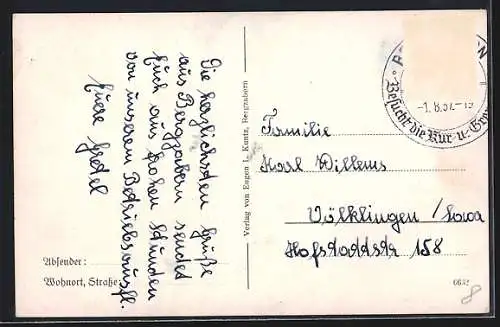 Die herzlichsten Grüße
aus Bergzabern sendet
Euch aus frohen Stunden
von unserem Betriebsausfl.
Euere Gretel
Absender:
Wohnort, Straße:
Verlag von Eugen L. Kuntz, Bergzabern
Besucht die Kur- u.
-1.8.37.-19
Familie
Karl Willems
Völklingen /Saar
Hofstattstr 158
6632
8